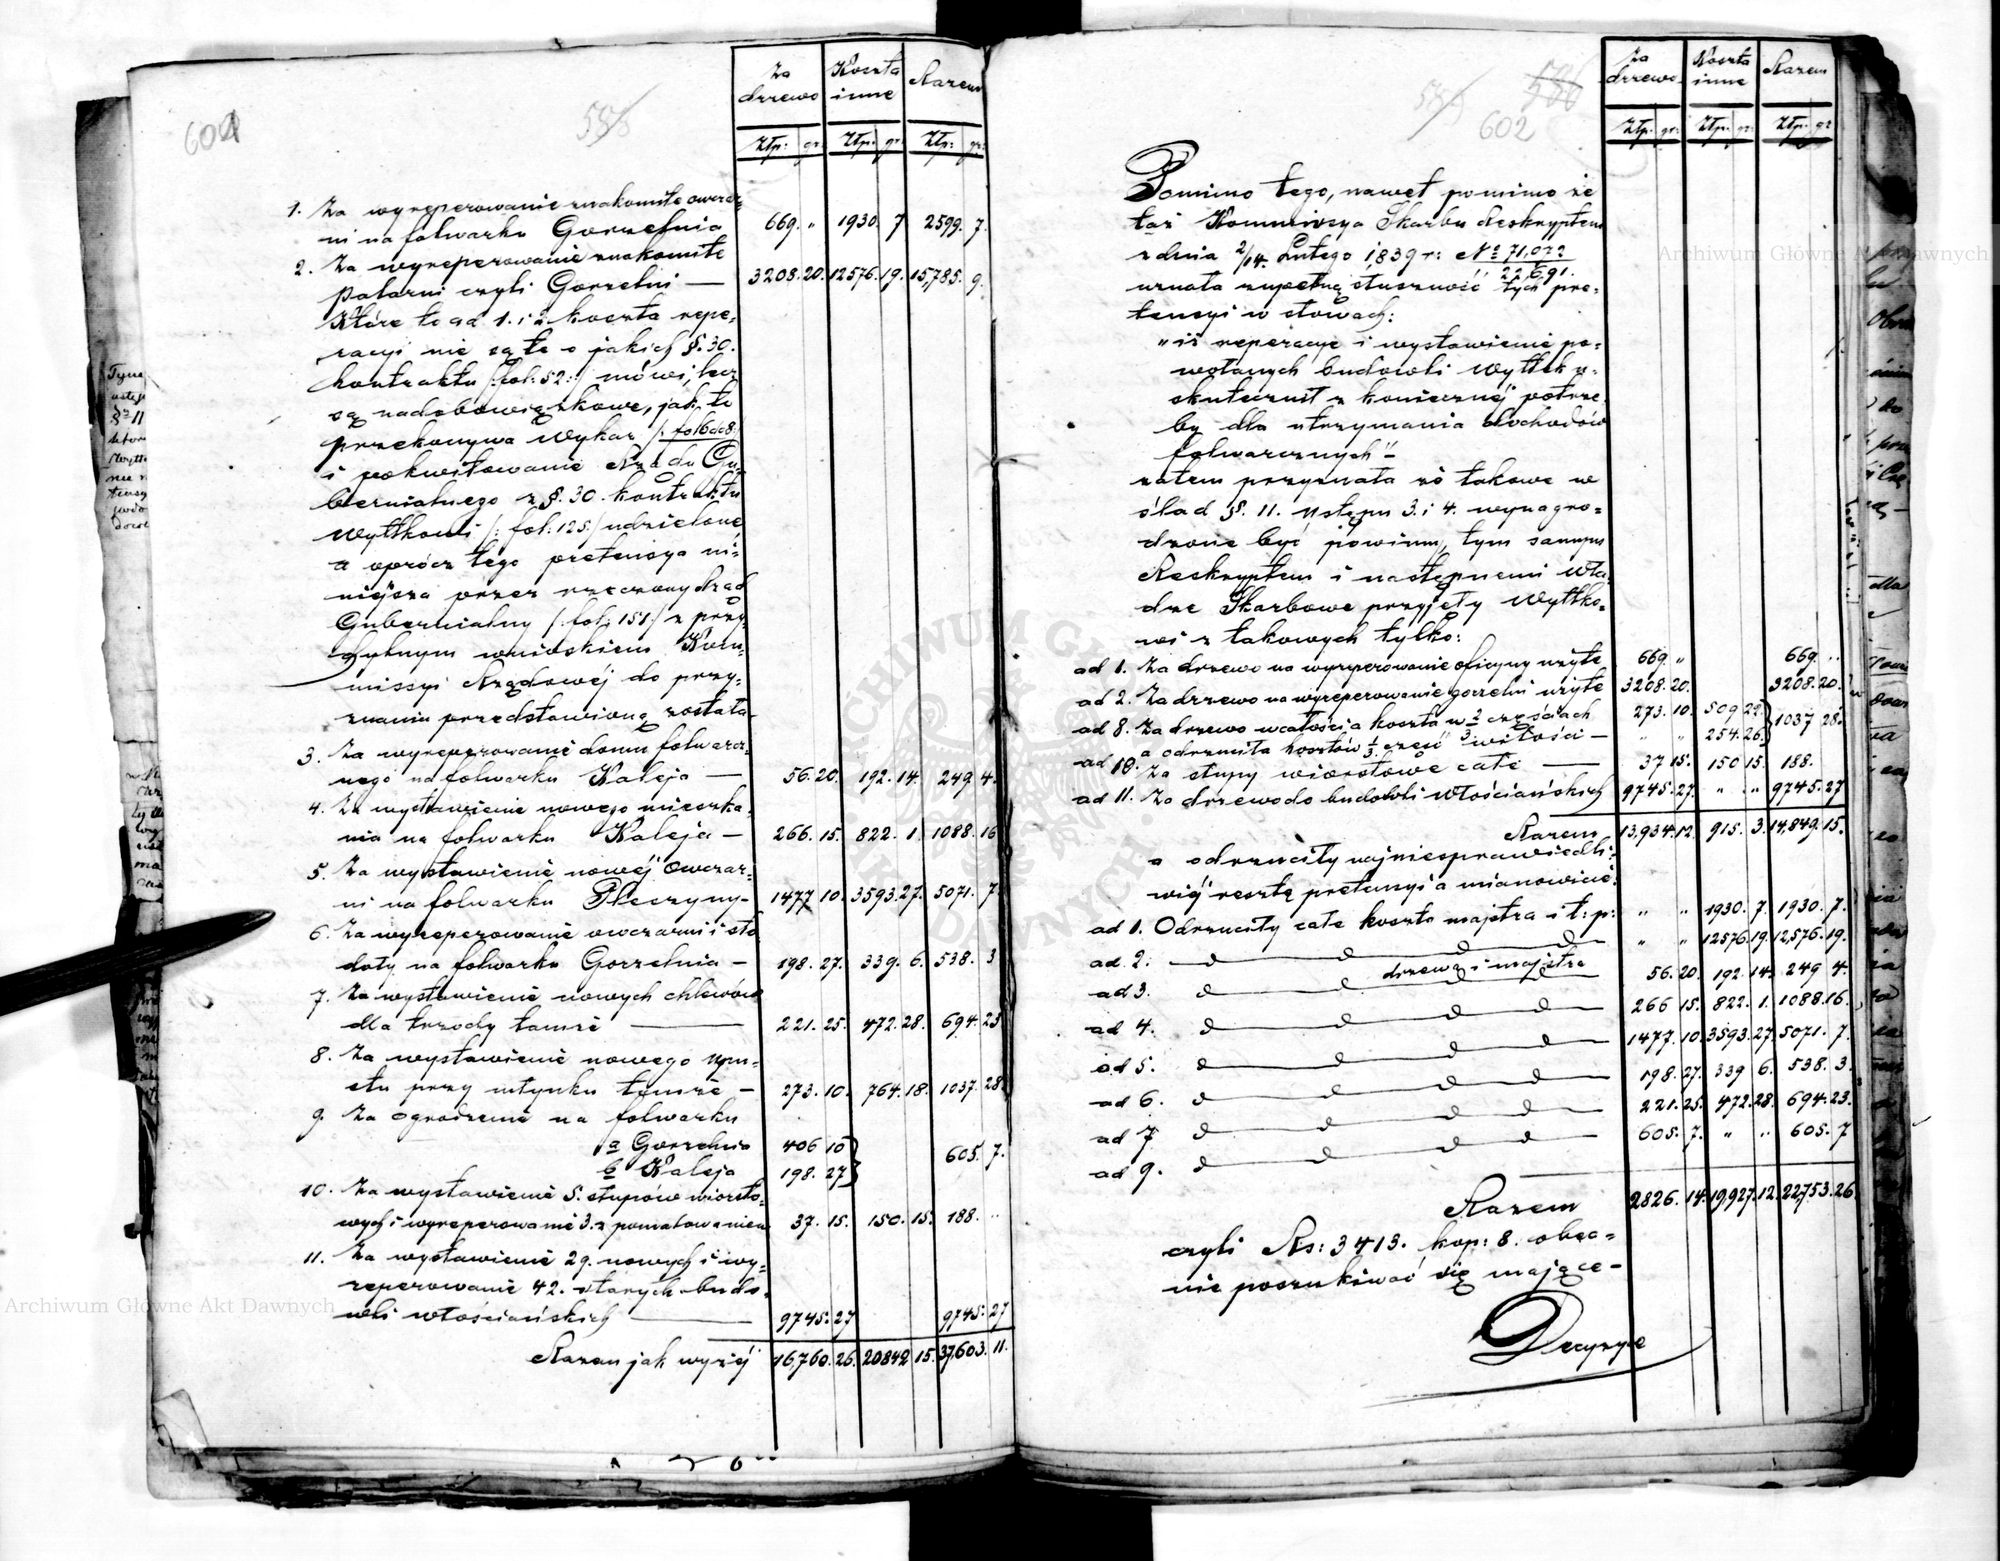 601
Za drzewo | Koszta inne | Razem
Złp: gr: | Złp: gr: | Złp: gr:
1. Za wyreperowanie znakomite owczar-
ni na folwarku Gorzelnia 669. „ 1930. 7 2599. 7.
2. Za wyreperowanie znakomite
Palarni czyli Gorzelni — 3208. 20. 12576. 19. 15,785. 9.
Które to ad 1. i 2 koszta repe-
racyi nie są te o jakich §. 30.
kontraktu /: fol: 52 :/ mówi, lecz
są nadobowiązkowe, jak to
przekonywa Wykaz /: fol 6 do 8 :/
i pokwitowanie Rządu Gu-
bernialnego z §. 30. kontraktu
Wyttkowi /: fol: 125 :/ udzielone
a oprócz tego pretensya ni-
niejsza przez rzeczony Rząd
Gubernialny /: fol: 151 :/ z przy-
chylnym wnioskiem Kom-
missyi Rządowéj do przy-
znania przedstawioną została.
3. Za wyreperowanie domu folwarcz-
nego na folwarku Kaleja — 56. 20. 192. 14. 249. 4.
4. Za wystawienie nowego mieszka-
nia na folwarku Kaleja — 266. 15. 822. 1. 1088. 16
5. Za wystawienie nowéj Owczar-
ni na folwarku 1477 10. 3593. 27. 5071. 7.
6. Za wyreperowanie owczarni i sto-
doły na folwarku Gorzelnia — 198. 27. 339. 6. 538. 3
7. Za wystawienie nowych chlewów
dla trzody tamże — 221. 25. 472. 28. 694. 23
8. Za wystawienie nowego upu-
stu przy młynku tamże — 273. 10. 764. 18. 1037. 28.
9. Za ogrodzenie na folwarku
a Gorzelnia 406 10
b Kaleja 198. 27 } 605. 7.
10. Za wystawienie 5. słupów wiorsto-
wych i wyreperowanie 3. z pomalowaniem 37. 15. 150. 15. 188. „
11. Za wystawienie 29. nowych i wy-
reperowanie 42. starych budo-
wli włościańskich — 9745. 27 9745. 27
Razem jak wyżéj 16,760. 26. 20842 15. 37,603. 11.
602
Za drzewo | Koszta inne | Razem
Złp: gr: | Złp: gr: | Złp: gr
Pomimo tego, nawet pomimo że
taż Kommissya Skarbu Reskryptem
z dnia 2/14. Lutego 1839 r: № 71,073/22,691.
uznała zupełną słuszność tych pre-
tensyi w słowach:
„iż reperacye i wystawienie po-
wołanych budowli Wyttek u-
skutecznił z koniecznéj potrze-
by dla utrzymania dochodów
folwarcznych" –
zatem przyznała że takowe w
ślad §. 11. Ustępu 3. i 4. wynagro-
dzone być powinny, tym samym
Reskryptem i następnemi Wła-
dze Skarbowe przyjęły Wyttko-
wi z takowych tylko:
ad 1. Za drzewo na wyreperowanie oficyny użyte 669. „ 669. „
ad 2. Za drzewo na wyreperowanie gorzelni użyte 3208. 20. 3208. 20.
ad 8. Za drzewo w całości a koszta w 2/3 częściach 273. 10. 509 22.
a odrzuciła kosztów 1/3 część „ „ 254. 26. } 1037 28.
ad 10. Za słupy wiorstowe całe — 37 15. 150 15. 188.
ad 11. Za drzewo do budowli Włościańskich 9745. 27. „ „ 9745. 27
Razem 13,934. 12. 915. 3. 14,849. 15.
a odrzuciły najniesprawiedli-
wiéj resztę pretensyi a mianowicie:
ad 1. Odrzuciły całe koszta majstra i t: p: „ „ 1930. 7. 1930. 7.
ad 2. „ „ 12576. 19. 12,576. 19.
drzewa i majstra
ad 3. 56. 20. 192. 14. 249 4.
ad 4. 266 15. 822. 1. 1088. 16.
ad 5. 1477. 10. 3593. 27. 5071. 7.
ad 6. 198. 27. 339 6. 538. 3.
ad 7 221. 25. 472. 28. 694. 23.
ad 9. 605. 7. „ „ 605. 7
Razem 2826. 14. 19,927. 12. 22,753. 26.
czyli Rs: 3413. kop: 8. obec-
nie poszukiwać się mające –
Decyzye
Archiwum Główne Akt Dawnych
Archiwum Główne Akt Dawnych